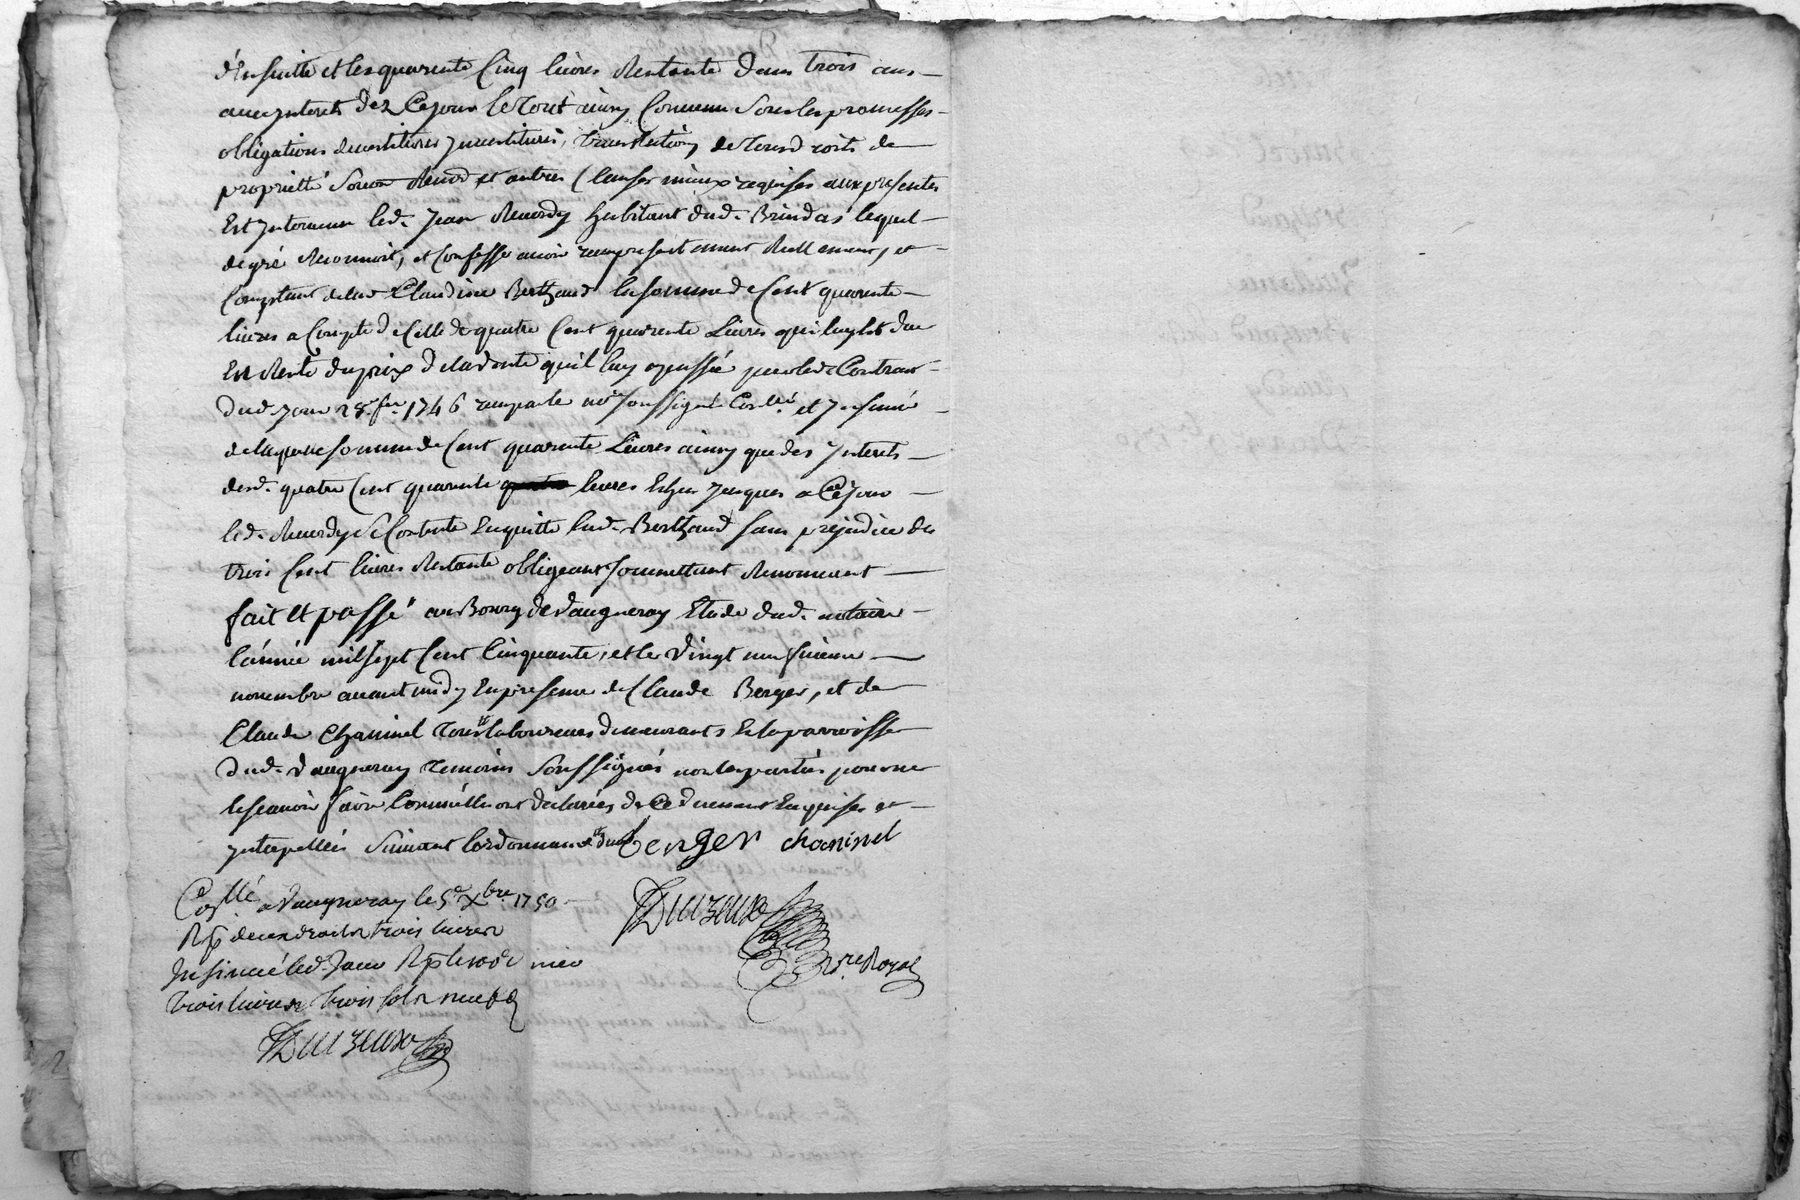 d'ensuitte et les quarente Cinq livres Restante dans trois ans
avec interets dez Ce jour le tout ainsy Convenu Sous les promesses
obligations devestitures investitures, translation de tous droits de
proprietté et autres Clauses mieux requises aux presentes
Est intervenu led. Jean Reverdy habitant dud. Brindas lequel
de gré Reconnoit, et Confesse avoir reçu presentement Reellement, et
Comptant de lad. Claudine Berthaud la somme de Cent quarente
livres a Compte de Celle de quatre Cent quarente Livres qui luy Est due
En Reste du prix de la vente qu'il luy a passée par led. Contrat
dud. jour 28e. 1746 reçu par le no.re soussigné Con.llé et Insinué
de laquelle somme de Cent quarente Livres ainsy que des Interets
desd. quatre Cent quarente livres Echus jusques a Ce jour
led. Reverdy se Contente En quitte lad. Berthaud sans prejudice des
trois Cent livres Restante obligeant soumettant Renonceant
fait et passé au Bourg de Vaugneray Etude dud. notaire
l'année mil sept Cent Cinquante, et le Vingt neufvieme
novembre avant midy En presence de Claude Berger, et de
Claude Chaninel tous laboureurs demeurants En la parroisse
dud. Vaugneray temoins Soussignés non les parties pour ne
le sçavoir faire Comme elles ont declarées de Ce duement Enquises et
interpellées Suivant l'ordonnance
berger chaninel
Con.llé a Vaugneray le 5e Xbre 1750
Rp deux droits trois livres
Insinué led. jour Rp
trois livres trois sols neuf d
Duzeux
n.re Royal
Duzeux